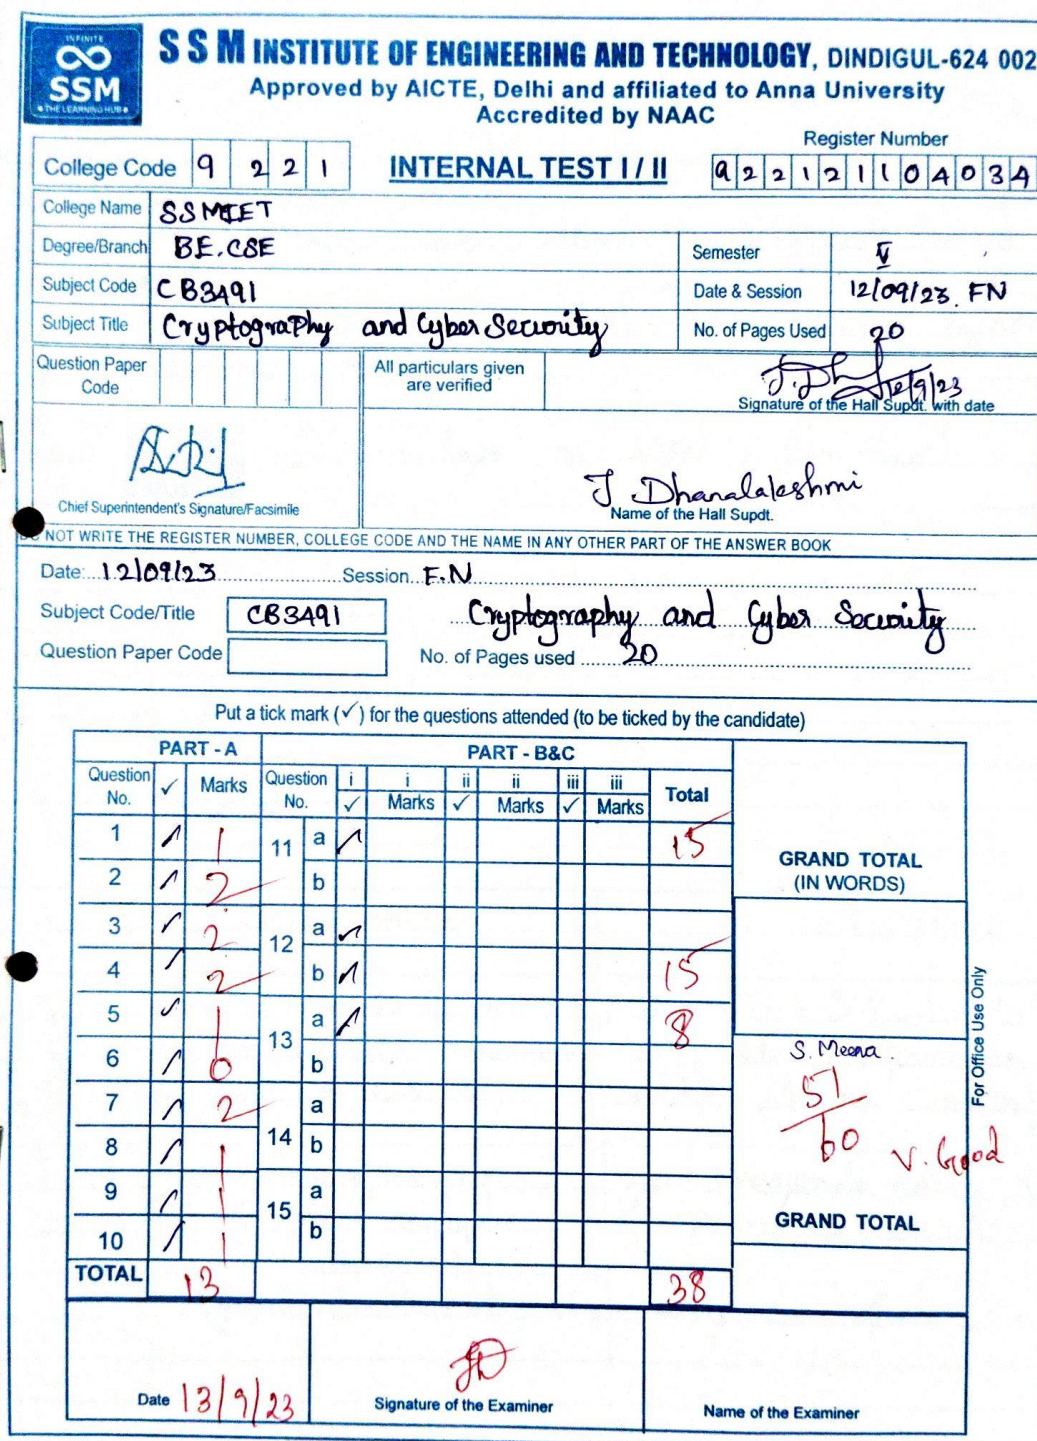 INFINITE
SSM
THE LEARNING HUB
S S M INSTITUTE OF ENGINEERING AND TECHNOLOGY, DINDIGUL-624 002
Approved by AICTE, Delhi and affiliated to Anna University
Accredited by NAAC
Register Number
College Code 9 2 2 1 INTERNAL TEST I / II 9 2 2 1 2 1 1 0 4 0 3 4
College Name SSMIET
Degree/Branch BE.CSE Semester V
Subject Code CB3491 Date & Session 12/09/23. FN
Subject Title Cryptography and Cyber Security No. of Pages Used 20
Question Paper Code
All particulars given are verified
12/9/23
Signature of the Hall Supdt. with date
Chief Superintendent's Signature/Facsimile
J Dhanalakshmi
Name of the Hall Supdt.
DO NOT WRITE THE REGISTER NUMBER, COLLEGE CODE AND THE NAME IN ANY OTHER PART OF THE ANSWER BOOK
Date: 12/09/23 Session F.N
Subject Code/Title CB3491 Cryptography and Cyber Security
Question Paper Code No. of Pages used 20
Put a tick mark (✓) for the questions attended (to be ticked by the candidate)
PART - A PART - B&C
Question No. ✓ Marks Question No. i ✓ i Marks ii ✓ ii Marks iii ✓ iii Marks Total
1 ✓ 1 11 a ✓ 15
2 ✓ 2 b
3 ✓ 2 12 a ✓
4 ✓ 2 b ✓ 15
5 ✓ 1 13 a ✓ 8
6 ✓ 0 b
7 ✓ 2 14 a
8 ✓ 1 b
9 ✓ 1 15 a
10 ✓ 1 b
TOTAL 13 38
GRAND TOTAL
(IN WORDS)
S. Meena
51/60
V. Good
GRAND TOTAL
For Office Use Only
Date 13/9/23
Signature of the Examiner
Name of the Examiner